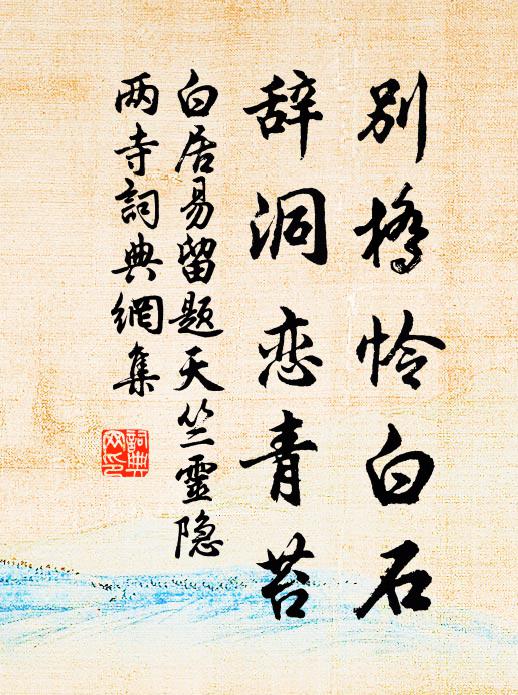 别桥怜白石
辞洞恋青苔
白居易留题天竺靈隐
两寺詞典網集
詞典